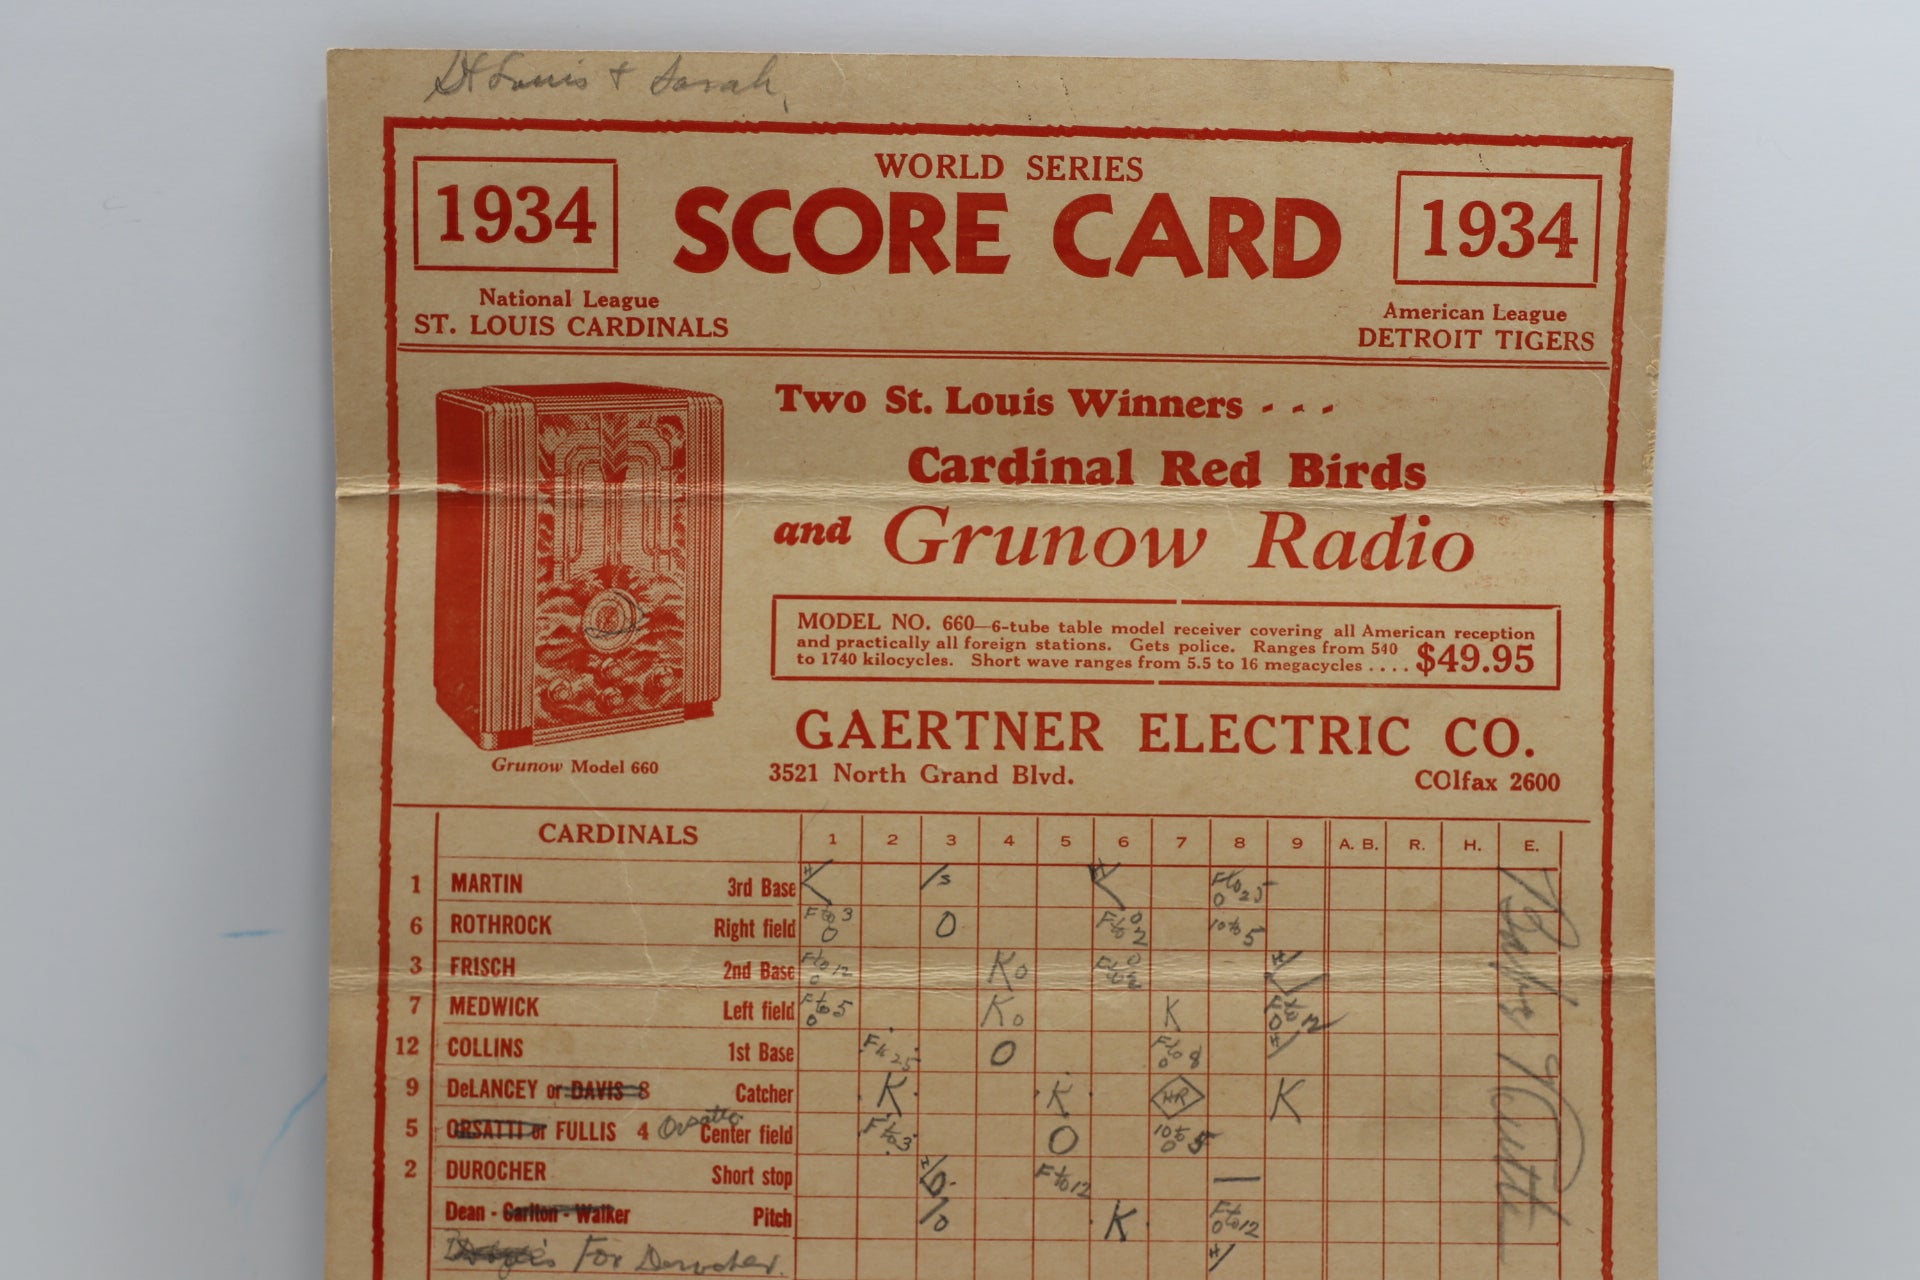 St Louis + Sarah,
WORLD SERIES
1934 SCORE CARD 1934
National League American League
ST. LOUIS CARDINALS DETROIT TIGERS
Two St. Louis Winners - - -
Cardinal Red Birds
and Grunow Radio
MODEL NO. 660—6-tube table model receiver covering all American reception
and practically all foreign stations. Gets police. Ranges from 540
to 1740 kilocycles. Short wave ranges from 5.5 to 16 megacycles .... $49.95
GAERTNER ELECTRIC CO.
Grunow Model 660
3521 North Grand Blvd. COlfax 2600
CARDINALS 1 2 3 4 5 6 7 8 9 A. B. R. H. E.
1 MARTIN 3rd Base H /s H F to 25 0
6 ROTHROCK Right field F to 3 0 0 F to 2 0 10 to 5
3 FRISCH 2nd Base F to 12 0 K 0 F to 2 0 H
7 MEDWICK Left field F to 5 0 K 0 K F to 12 0
12 COLLINS 1st Base F to 25 0 F to 8 0 H
9 DeLANCEY or DAVIS 8 Catcher K K HR K
5 ORSATTI or FULLIS 4 Orsatti Center field F to 3 0 10 to 5 0
2 DUROCHER Short stop H 0 F to 12 —
Dean - Carlton - Walker Pitch /0 K F to 12 0
For Durocher. H/